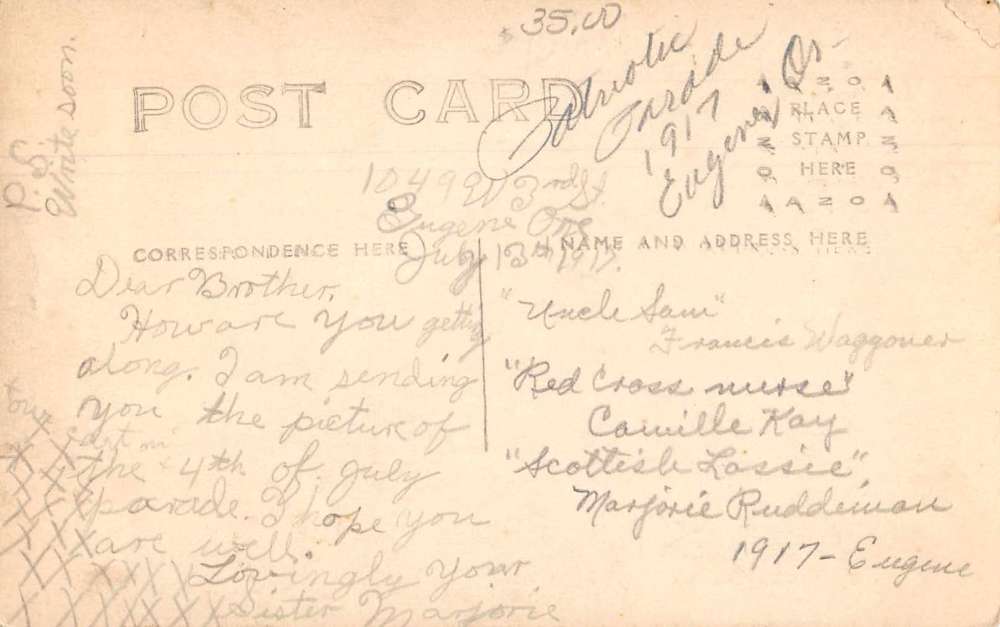 $35.00
Patriotic
Parade
1917
Eugene, Or
P.S.
Write soon.
POST CARD
AZOA
PLACE
STAMP
HERE
AAZOA
1049 W 3rd St.
Eugene Ore
July 13th 1917.
CORRESPONDENCE HERE
NAME AND ADDRESS HERE
Dear Brother,
How are you getting
along. I am sending
you the picture of
our part in
the 4th of July
parade. I hope you
are well.
Lovingly your
Sister Marjorie
"Uncle Sam"
Francis Waggoner
"Red Cross nurse"
Camille Kay
"Scottish Lassie"
Marjorie Ruddiman
1917 - Eugene